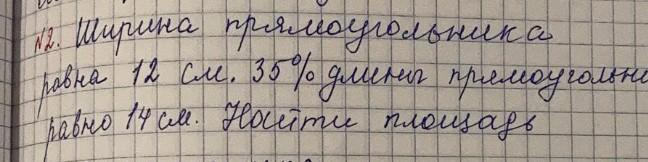 №2. Ширина прямоугольника
равна 12 см. 35% длины прямоугольни
равно 14 см. Найти площадь